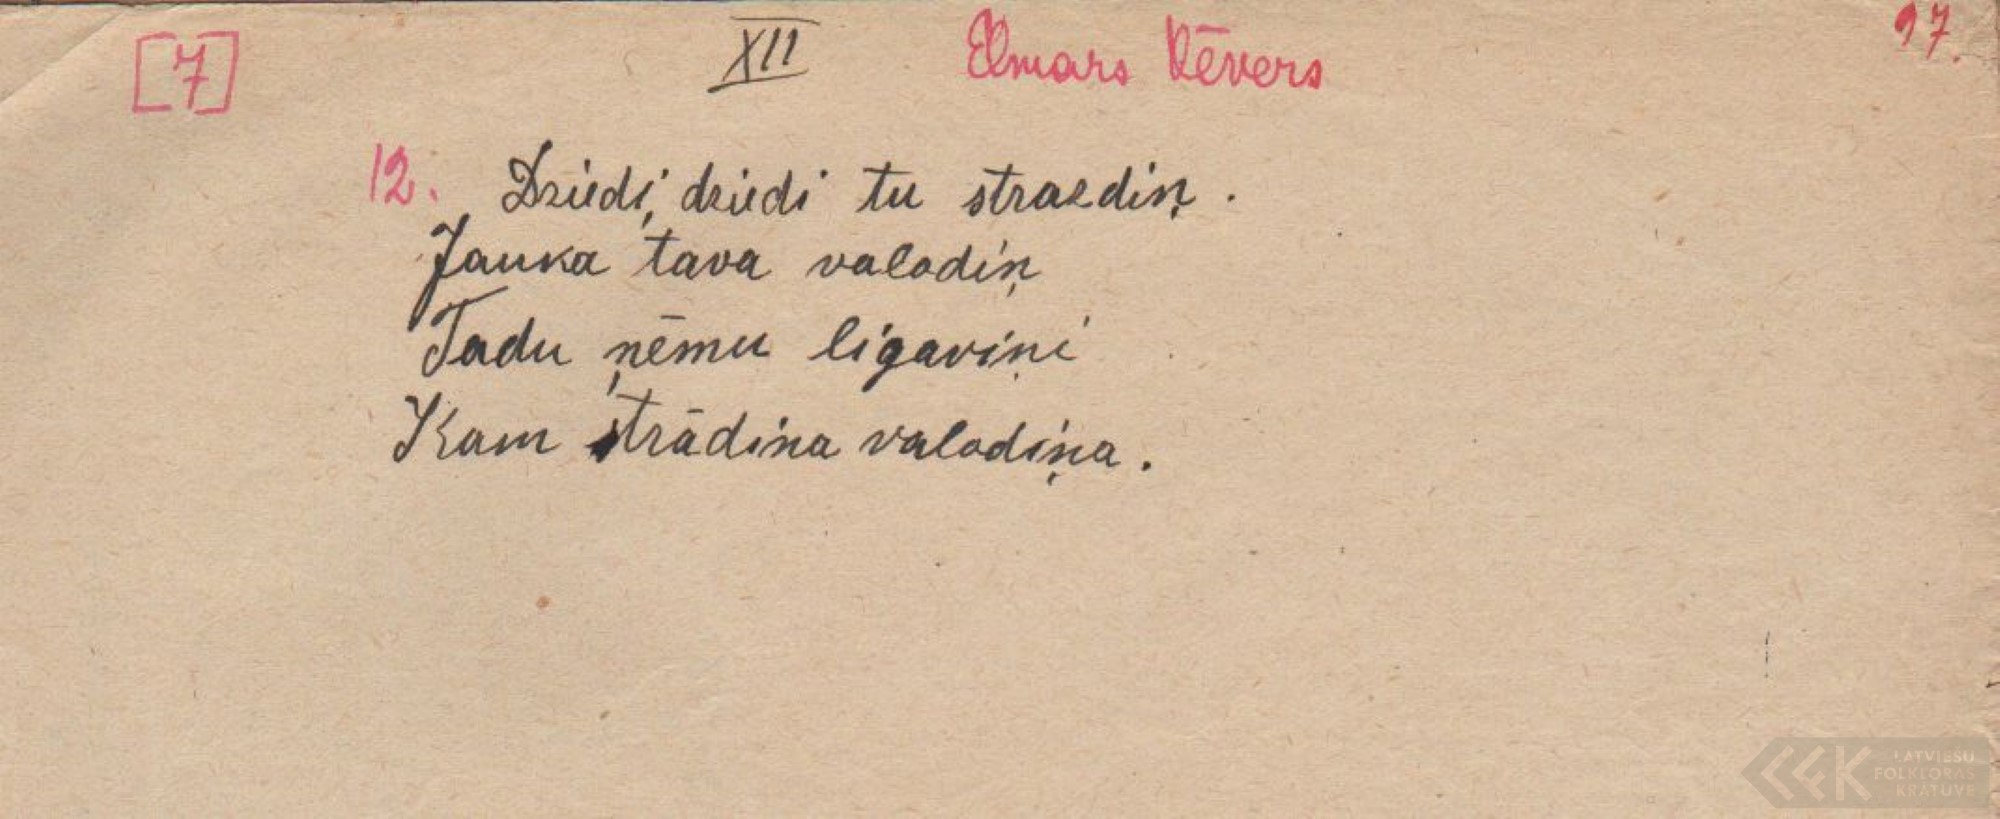 [7] XII Elmars Vēvers 97.
12. Dziedi, dziedi tu strazdiņ.
Jauka tava valodiņ
Tadu ņēmu ligaviņi
Kam strādina valodiņa.
LATVIEŠU
FOLKLORAS
KRĀTUVE